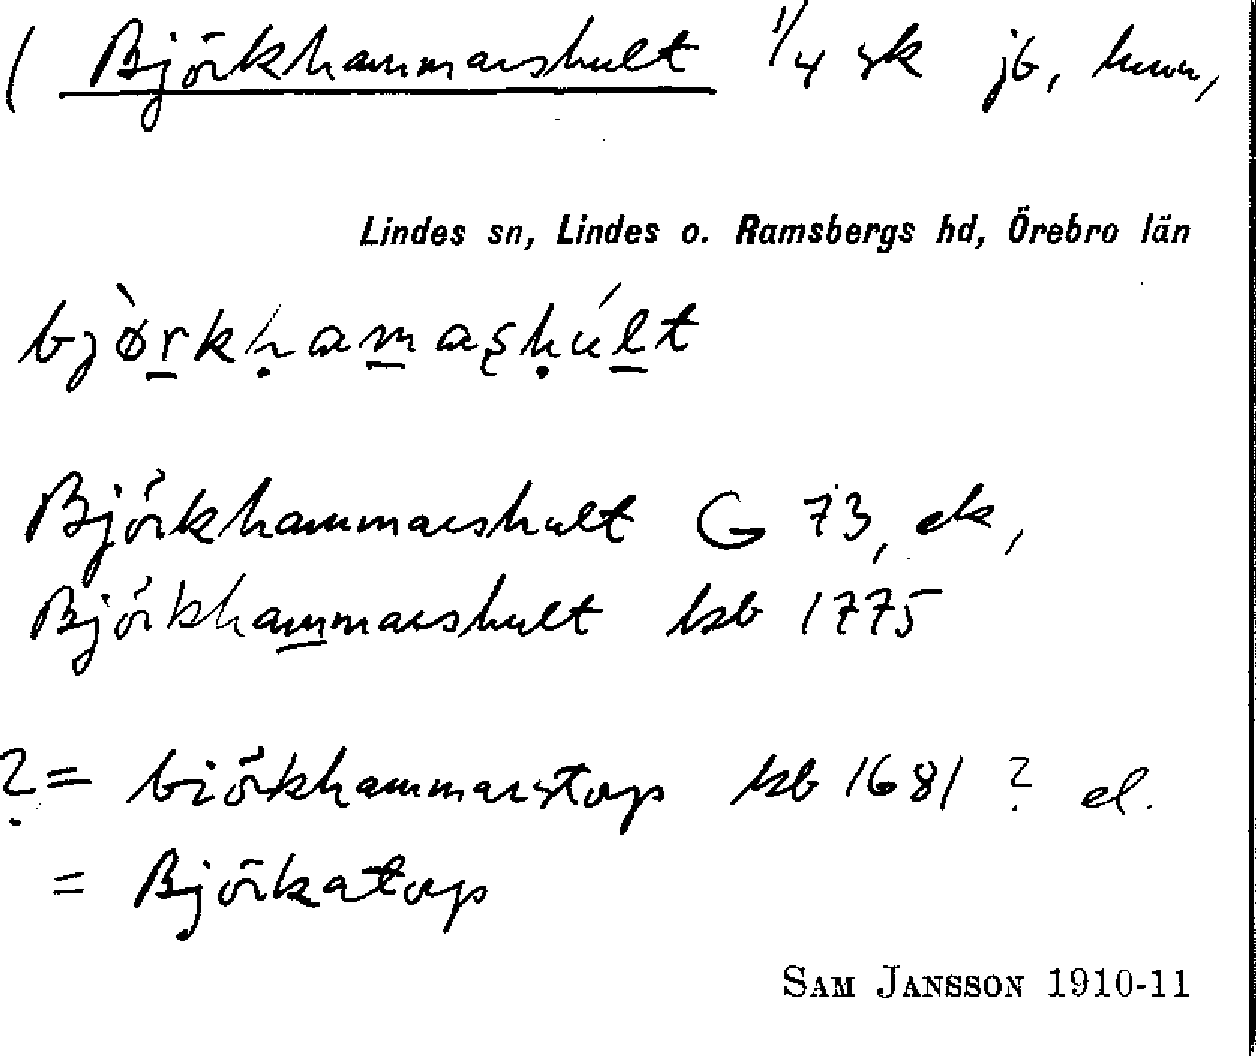 ( Björkhammarshult 1/4 sk jb, hmn,
Lindes sn, Lindes o. Ramsbergs hd, Örebro län
bjø̀rkḥamaʂḥúlt
Björkhammarshult G 73, ek,
Björkhammarshult kb 1775
? = biörkhammarstorp kb 1681 ? el.
= Björkatorp
SAM JANSSON 1910-11